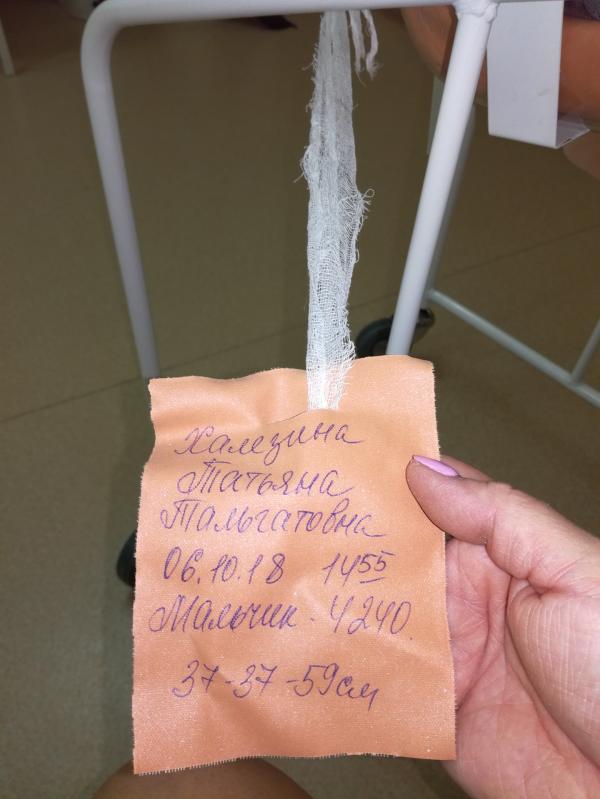 Халезина
Татьяна
Тальгатовна
06.10.18 14 55
Мальчик - 4240.
37-37-59см